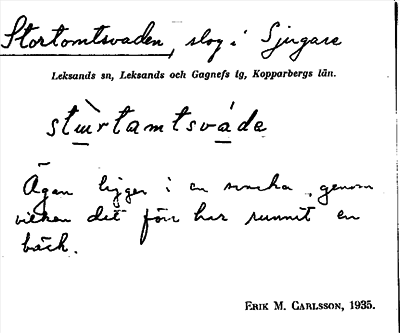 Stortomtsvaden, slog i Sjugare
Leksands sn, Leksands och Gagnefs tg, Kopparbergs län.
stùrtamtsváda
Ägan ligger i en svacka, genom
vilken det förr har runnit en
bäck.
ERIK M. CARLSSON, 1935.